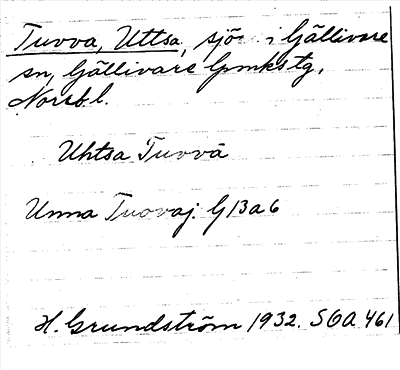 Tuvva, Uttsa, sjö i Gällivare
sn, Gällivare lpmkstg,
Norrb. l.
Uhtsa Tuvvā
Unna Tuovaj. G 13 a 6
H. Grundström 1932. SOA 461